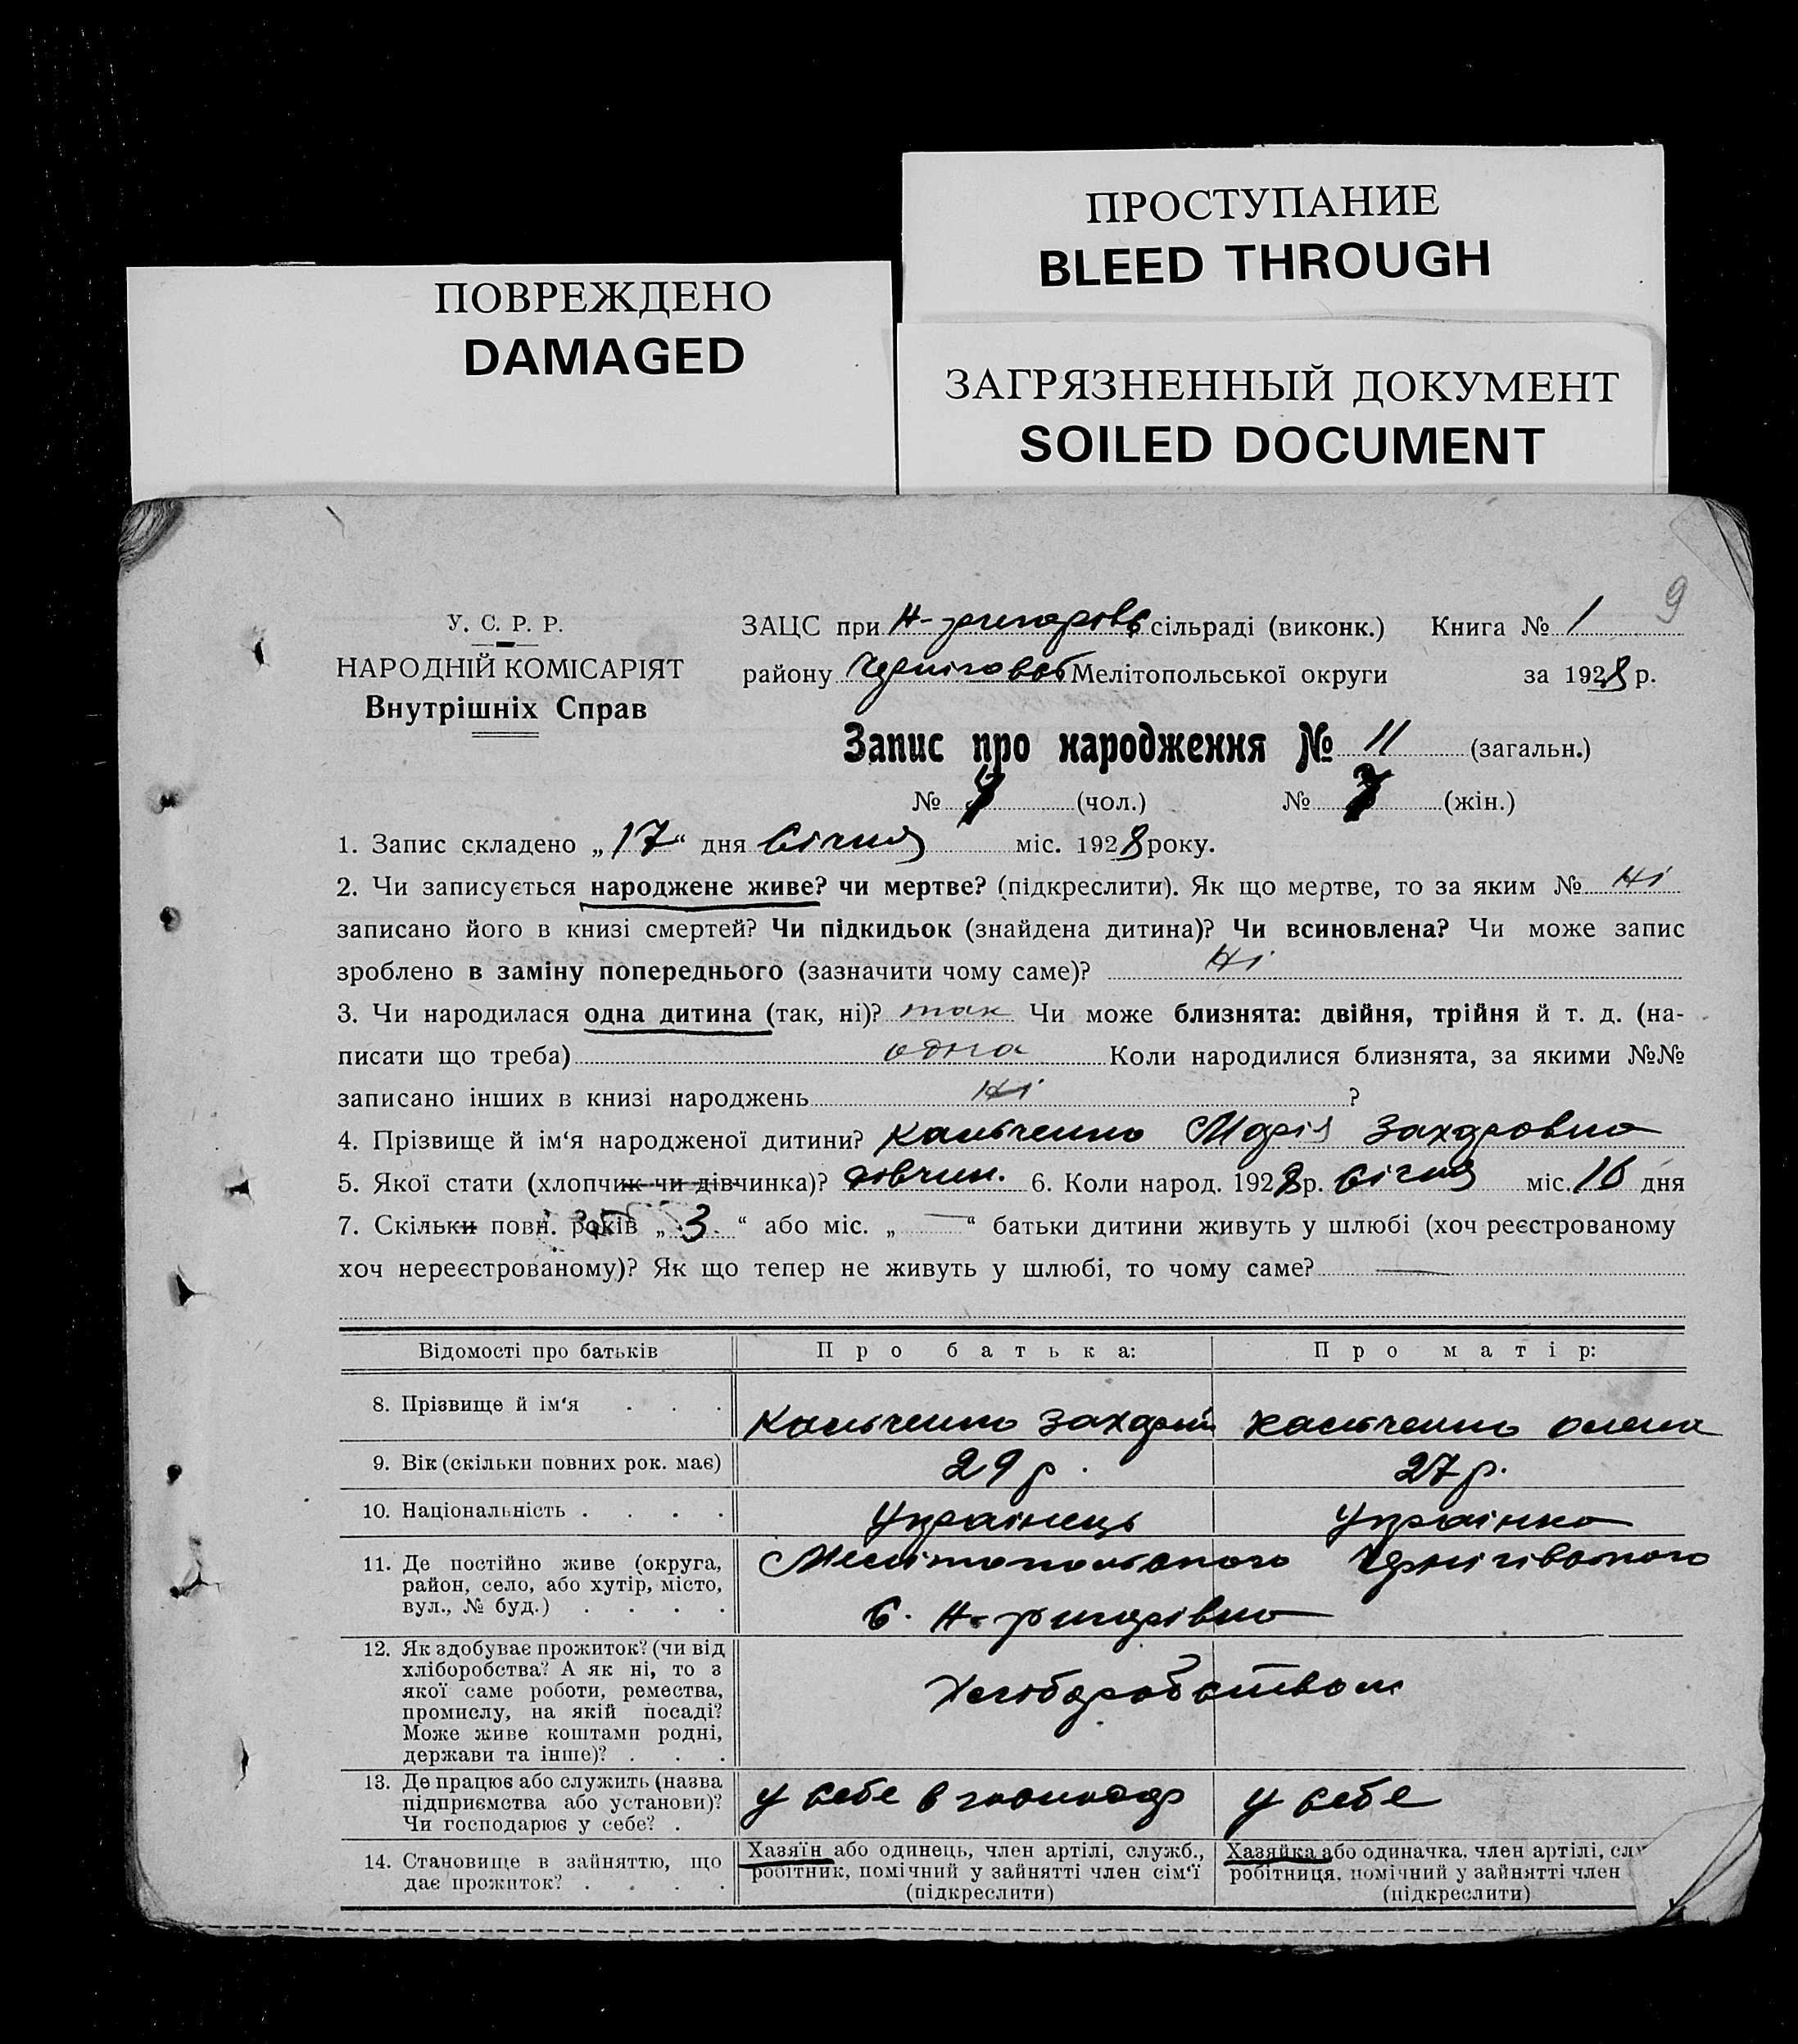 ПРОСТУПАНИЕ
BLEED THROUGH
ПОВРЕЖДЕНО
DAMAGED
ЗАГРЯЗНЕННЫЙ ДОКУМЕНТ
SOILED DOCUMENT
9
У. С. Р. Р.
НАРОДНІЙ КОМІСАРІЯТ
Внутрішніх Справ
ЗАЦС при сільраді (виконк.) Книга № 1
району Мелітопольської округи за 1928 р.
Запис про народження № 11 (загальн.)
№ (чол.) № 7 (жін.)
1. Запис складено „17“ дня Січня міс. 1928 року.
2. Чи записується народжене живе? чи мертве? (підкреслити). Як що мертве, то за яким № Ні
записано його в книзі смертей? Чи підкидьок (знайдена дитина)? Чи всиновлена? Чи може запис
зроблено в заміну попереднього (зазначити чому саме)? Ні
3. Чи народилася одна дитина (так, ні)? так Чи може близнята: двійня, трійня й т. д. (на-
писати що треба) одна Коли народилися близнята, за якими №№
записано інших в книзі народжень ні ?
4. Прізвище й ім‘я народженої дитини? Кальченко Марія Захаровна
5. Якої стати (хлопчик чи дівчинка)? дівчин. 6. Коли народ. 1928 р. Січня міс. 16 дня
7. Скільки повн. років „3“ або міс. „—“ батьки дитини живуть у шлюбі (хоч реєстрованому
хоч нереєстрованому)? Як що тепер не живуть у шлюбі, то чому саме? —
Відомості про батьків Про батька: Про матір:
8. Прізвище й ім‘я . . . Кальченко Захарій Кальченко Олена
9. Вік (скільки повних рок. має) 29 р. 27 р.
10. Національність . . . . Українець Українка
11. Де постійно живе (округа,
район, село, або хутір, місто,
вул., № буд.) . . . .
Мелітопольского Чернігівського
с.
12. Як здобуває прожиток? (чи від
хліборобства? А як ні, то з
якої саме роботи, ремества,
промислу, на якій посаді?
Може живе коштами родні,
держави та інше)? . . .
Хліборобством
13. Де працює або служить (назва
підприємства або установи)?
Чи господарює у себе? .
у себе в господар у себе
14. Становище в зайняттю, що
дає прожиток? . . . .
Хазяїн або одинець, член артілі, служб.,
робітник, помічний у зайнятті член сім‘ї
(підкреслити)
Хазяйка або одиначка, член артілі, слу
робітниця, помічний у зайнятті член
(підкреслити)